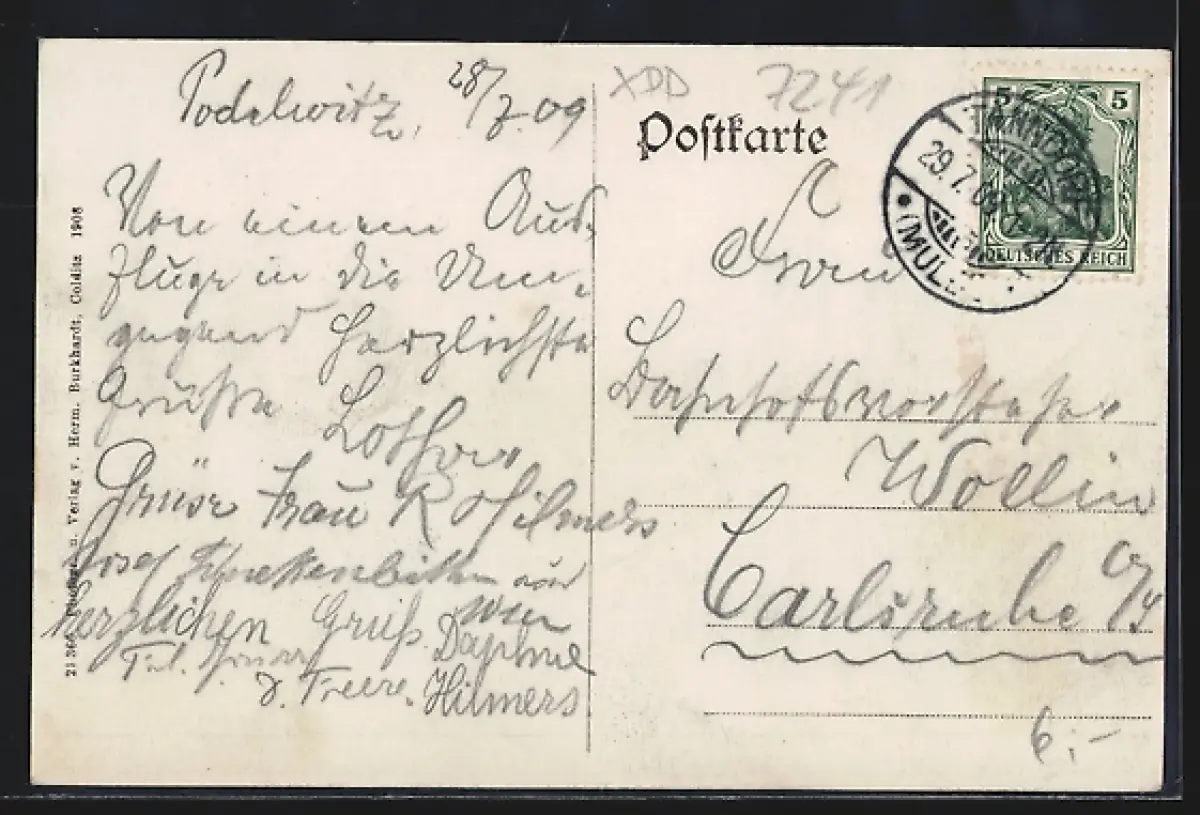 Podelwitz, 28/7.09
Von einem Aus-
fluge in die Um-
gegend herzlichste
Grüße Lothar
Grüse Frau R Hilmers
Josef
herzlichen Gruß. Daphne
Hilmers
21360 u. Verlag v. Herm. Burkhardt, Colditz 1908
XDD 7241
Postkarte
5 5
DEUTSCHES REICH
TANNDORF
29.7.09
(MULDE)
Frau
Bahnhofsvorsteher
Wollin
Carlsruhe O/S
6.-